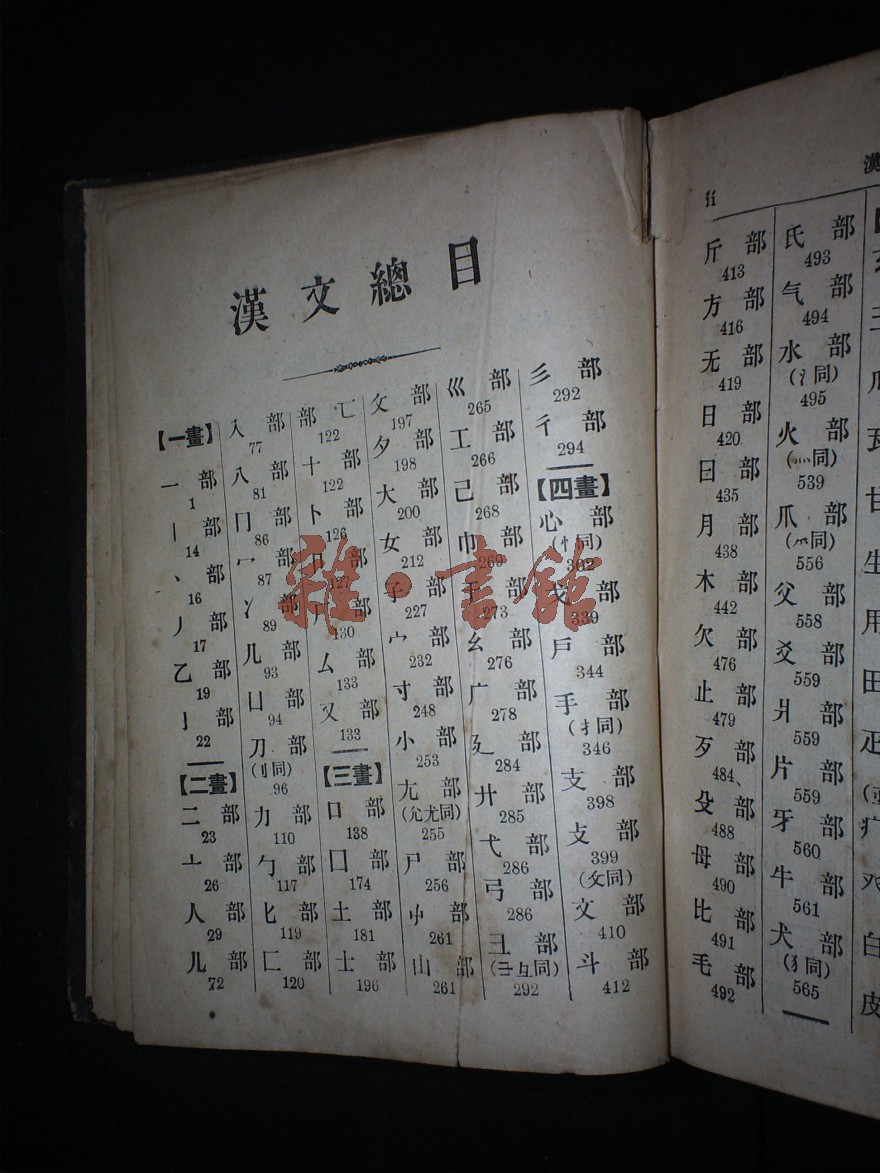 漢文總目
【一畫】
一部
1
丨部
14
丶部
16
丿部
17
乙部
19
亅部
22
【二畫】
二部
23
亠部
26
人部
29
儿部
72
入部
77
八部
81
冂部
86
冖部
87
冫部
89
几部
93
凵部
94
刀部
(刂同)
96
力部
110
勹部
117
匕部
119
匚部
120
部匸
122
十部
122
卜部
126
卩部
127
厂部
130
厶部
133
又部
133
【三畫】
口部
138
囗部
174
土部
181
士部
196
夊部
197
夕部
198
大部
200
女部
212
子部
227
宀部
232
寸部
248
小部
253
尢部
(尣尤同)
255
尸部
256
屮部
261
山部
261
巛部
265
工部
266
己部
268
巾部
269
干部
273
幺部
276
广部
278
廴部
284
廾部
285
弋部
286
弓部
286
彐部
(彐彑同)
292
彡部
292
彳部
294
【四畫】
心部
(忄同)
302
戈部
339
戶部
344
手部
(扌同)
346
支部
398
攴部
399
(攵同)
文部
410
斗部
412
雜·書館
ii
漢
斤部
413
方部
416
无部
419
日部
420
曰部
435
月部
438
木部
442
欠部
476
止部
479
歹部
484
殳部
488
母部
490
比部
491
毛部
492
氏部
493
气部
494
水部
(氵同)
495
火部
(灬同)
539
爪部
(爫同)
556
父部
558
爻部
559
爿部
559
片部
559
牙部
560
牛部
561
犬部
(犭同)
565
瓜
瓦
甘
生
用
田
疋
疒
癶
白
皮